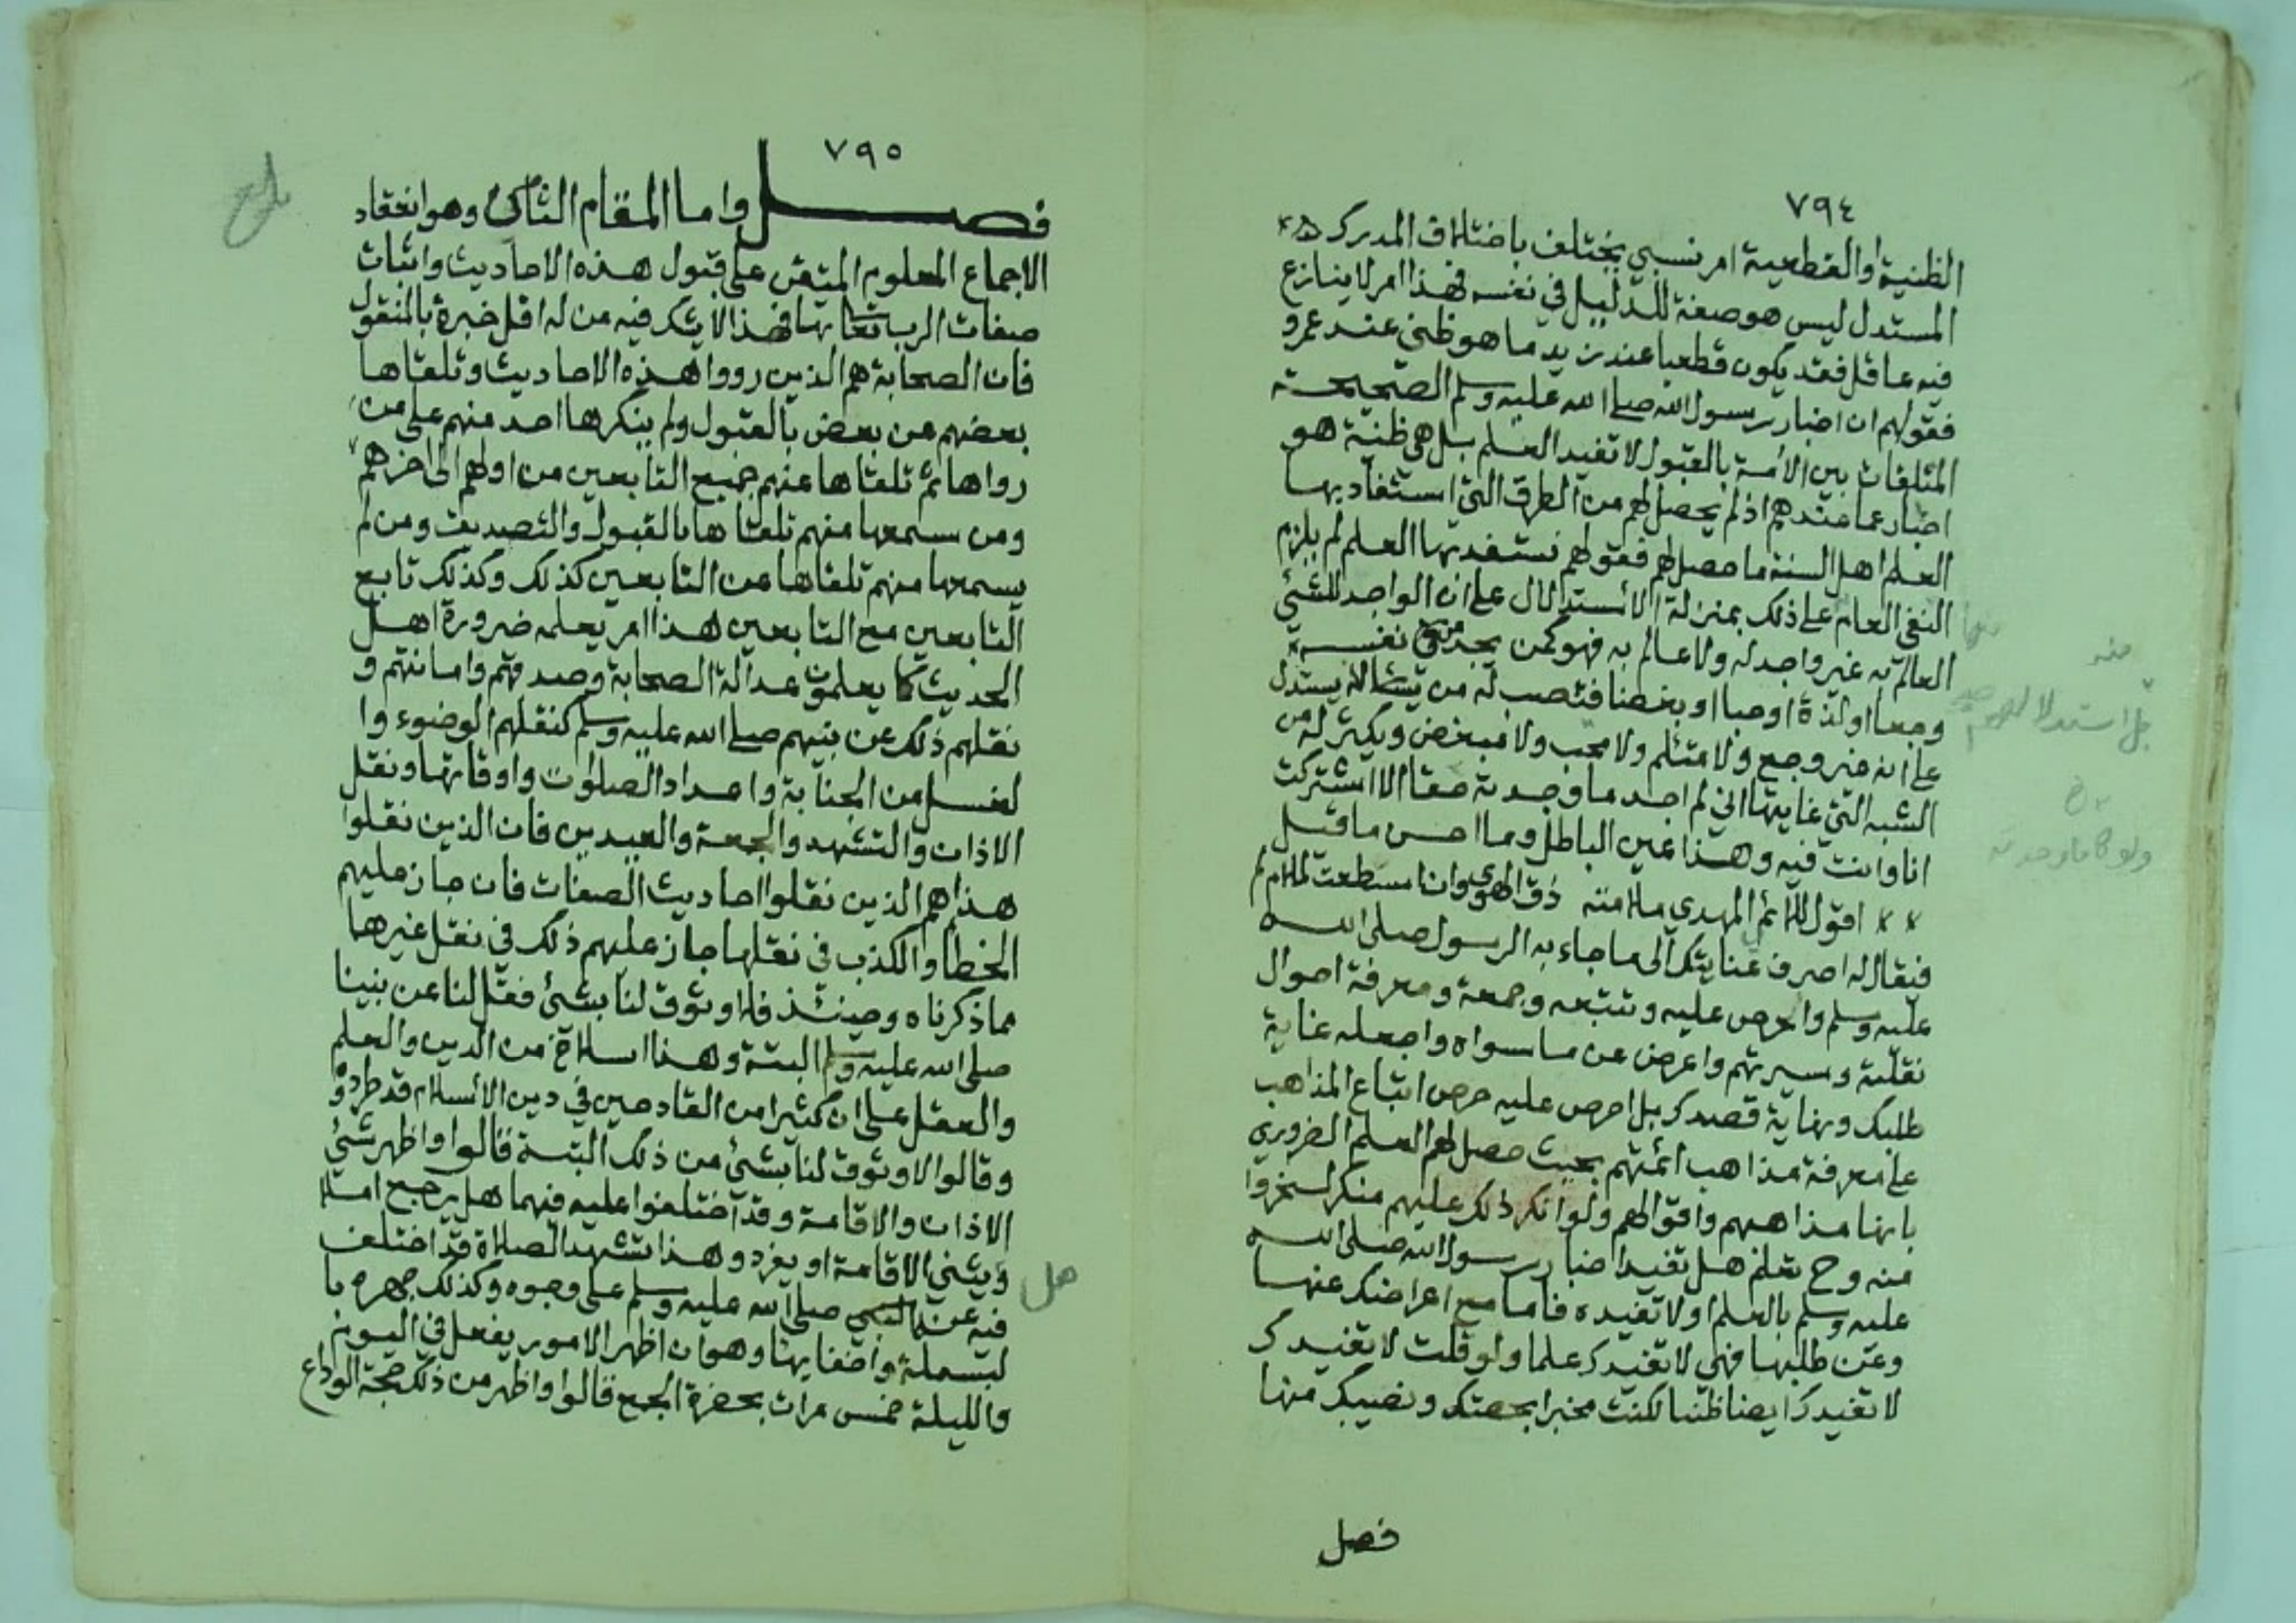 ٧٩٤
الظنية والقطعية امر نسبي يختلف باختلاف المدرك
المستدل ليس هو صفة للدليل في نفسه فهذا امر لا ينازع
فيه عاقل فقد يكون قطعيا عند زيد ما هو ظني عند عمرو
فقولهم ان اخبار رسول الله صلى الله عليه وسلم الصحيحة
المتلقات بين الأمة بالقبول لا تفيد العلم بل هي ظنية هو
اخبار عما عندهم اذ لم يحصل لهم من الطرق التي استفاد بها
العلم اهل السنة ما حصل لهم فقولهم نستفد بها العلم لم يلزم
النفي العام على ذلك بمنزلة الاستدلال على ان الواجد للشئ
العالم به غير واجد له ولا عالم به فهو كمن يجد من نفسه
وجعا او لذة او حبا او بغضا فتصب له من يستدل
على انه غير وجع ولا متئلم ولا محب ولا مبغض ويكثر له من
الشبه التي غايتها اني لم اجد ما وجدته حقا لاشتركت
انا وانت فيه وهذا عين الباطل وما احسن ما قيل
اقول للائم المهدي ملامته ذق الهوى وان اسطعت لملام لم
فيقال له اصرف عنايتك الى ما جاء به الرسول صلى الله
عليه وسلم والحرص عليه وتتبعه وجمعه ومعرفة احوال
نقلته وسيرتهم واعرض عن ما سواه واجعله غاية
طلبك ونهاية قصدك بل احرص عليه حرص اتباع المذاهب
على معرفة مذاهب ائمتهم بحيث حصل لهم العلم الضروري
بانها مذاهبهم واقوالهم ولو انكر ذلك عليهم منكر لسخروا
منه وح تعلم هل تفيد اخبار رسول الله صلى الله
عليه وسلم بالعلم او لا تفيده فاما مع اعراضك عنها
وعن طلبها فهي لا تفيدك علما ولو قلت لا تفيدك
لا تفيدك ايضا ظنا لكنت مخبرا بحصتك ونصيبك منها
فصل
منه
بل استدلالهم
ولو كان ما وجدته
٧٩٥
فصل واما المقام الثانى وهو انعقاد
الاجماع المعلوم المتيقن على قبول هذه الاحاديث واثبات
صفات الرب تعا بها فهذا لا يشك فيه من له اقل خبرة بالمنقول
فان الصحابة هم الذين رووا هذه الاحاديث وتلقاها
بعضهم من بعض بالقبول ولم ينكرها احد منهم على من
رواها ثم تلقاها عنهم جميع التابعين من اولهم الى اخرهم
ومن سمعها منهم تلقاها بالقبول والتصديق ومن لم
يسمعها منهم تلقاها عن التابعين كذلك وكذلك تابع
التابعين مع التابعين هذا امر يعلمه ضرورة اهل
الحديث كما يعلمون عدالة الصحابة وصدقهم وامانتهم و
نقلهم ذلك عن نبيهم صلى الله عليه وسلم كنقلهم الوضوء وا
لغسل من الجنابة واعداد الصلوات واوقاتها ونقل
الاذان والتشهد والجمعة والعيدين فان الذين نقلوا
هذا هم الذين نقلوا احاديث الصفات فان جاز عليهم
الخطا والكذب في نقلها جاز عليهم ذلك في نقل غيرها
مما ذكرناه وحينئذ فلا وثوق لنا بشئ فقل لنا عن نبينا
صلى الله عليه وسلم البتة وهذا انسلاخ من الدين والعلم
والعقل على ان كثيرا من القادحين في دين الأسلام قد طردوه
وقالوا لا وثوق لنا بشئ من ذلك البتة قالوا واظهر شئ
الاذان والاقامة وقد اختلفوا عليه فيهما هل يرجع ام لا
ويثني الاقامة او يفرد وهذا تشهد الصلاة قد اختلف
فيه عن النبي صلى الله عليه وسلم على وجوه وكذلك جهره با
لبسملة واخفايها وهو ان اظهر الامور يفعل في اليوم
والليلة خمس مرات بحضرة الجمع قالوا واظهر من ذلك حجة الوداع
بلغ
هل